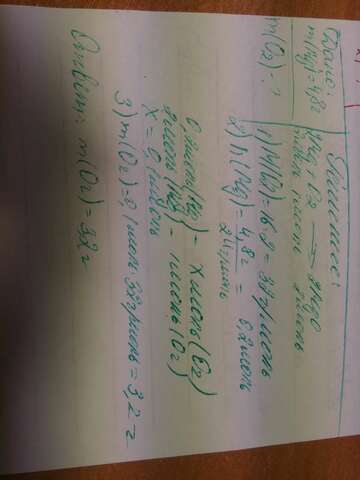 Дано:
m(Mg)=4,8г
m(O2)-?
Решение:
2Mg + O2 → 2MgO
2моль 1моль 2моль
1) M(O2)=16·2=32г/моль
2) n(Mg)= 4,8г = 0,2моль
24г/моль
0,2моль(Mg) - xмоль(O2)
2моль(Mg) - 1моль(O2)
x = 0,1моль
3) m(O2)=0,1моль·32г/моль=3,2 г
Ответ: m(O2)=3,2 г